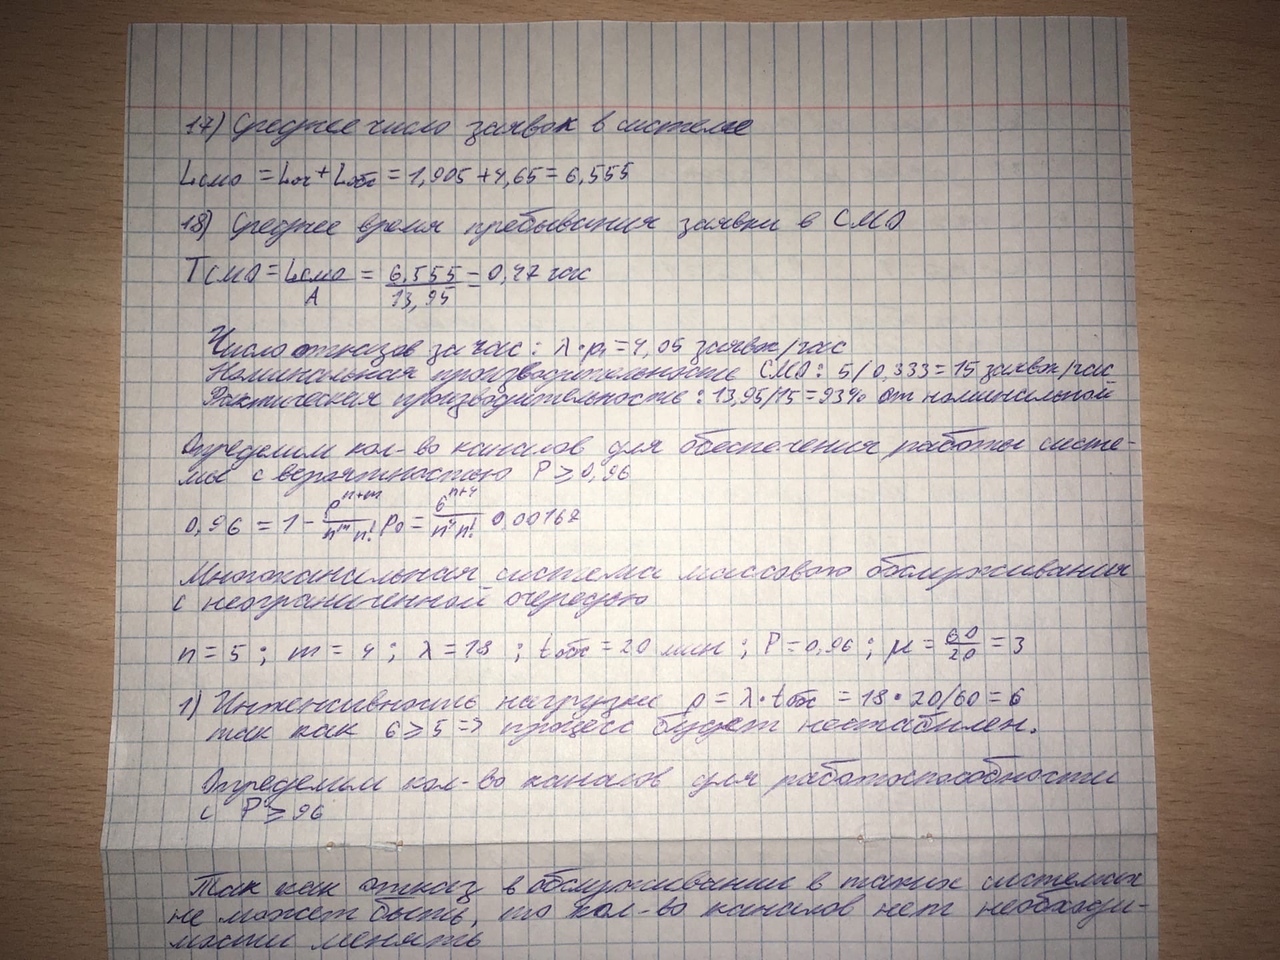 17) Среднее число заявок в системе
Lсмо = Lоч + Lобс = 1,905 + 4,65 = 6,555
18) Среднее время пребывания заявки в СМО
Tсмо = Lсмо/A = 6,555/13,95 = 0,47 час
Число отказов за час: λ·p₁ = 4,05 заявок/час
Номинальная производительность СМО: 5/0,333 = 15 заявок/час
Фактическая производительность: 13,95/15 = 93% от номинальной
Определим кол-во каналов для обеспечения работы систе-
мы с вероятностью P ≥ 0,96
0,96 = 1 - ρ^(n+m)/(n^m n!) p₀ = 6^(n+4)/(n^4 n!) 0,00167
Многоканальная система массового обслуживания
с неограниченной очередью
n = 5 ; m = 4 ; λ = 18 ; tобс = 20 мин ; P = 0,96 ; μ = 60/20 = 3
1) Интенсивность нагрузки ρ = λ·tобс = 18·20/60 = 6
так как 6 ≥ 5 => процесс будет нестабилен.
Определим кол-во каналов для работоспособности
с P ≥ 96
Так как отказ в обслуживании в таких системах
не может быть, то кол-во каналов нет необходи-
мости менять